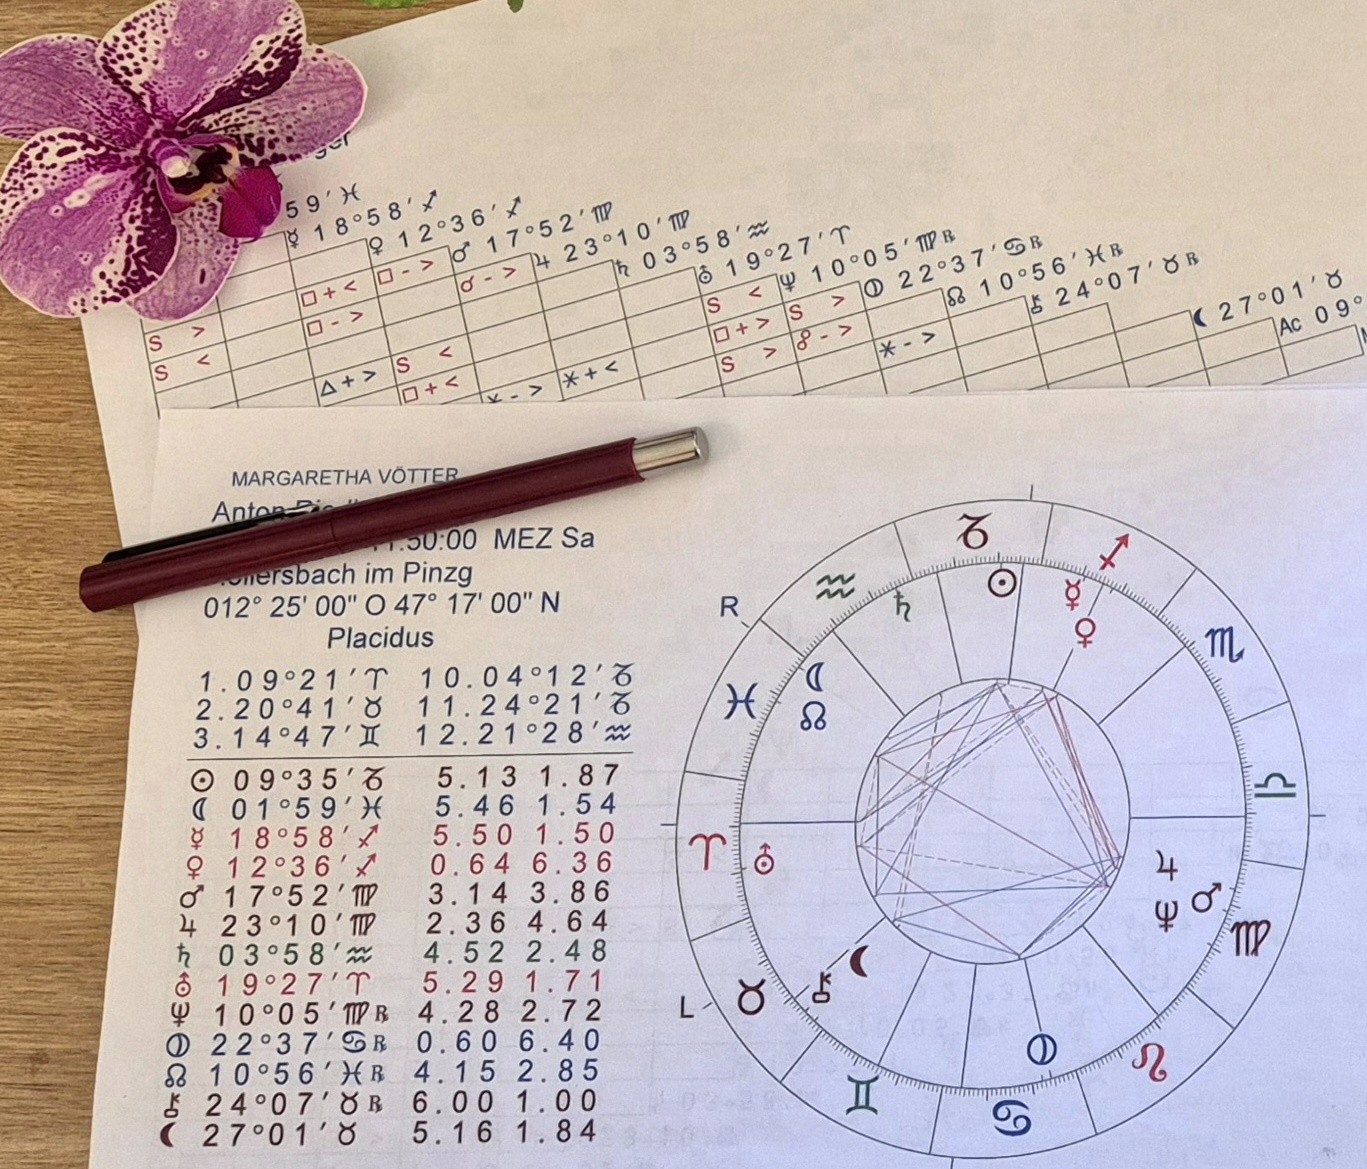 59'♓
☿ 18°58'♐
♀ 12°36'♐
♂ 17°52'♍
♃ 23°10'♍
♄ 03°58'♒
⛢ 19°27'♈
♆ 10°05'♍ ℞
22°37'♋ ℞
☊ 10°56'♓ ℞
⚷ 24°07'♉ ℞
⚸ 27°01'♉
Ac 09°
□ + <
□ - >
☌ - >
S <
S >
S >
□ - >
□ + >
☍ - >
S <
S <
S >
⚹ - >
△ + >
□ + <
⚹ - >
⚹ + <
MARGARETHA VÖTTER
Anton
50:00 MEZ Sa
im Pinzg
012° 25' 00" O 47° 17' 00" N
Placidus
1. 09°21'♈ 10. 04°12'♑
2. 20°41'♉ 11. 24°21'♑
3. 14°47'♊ 12. 21°28'♒
☉ 09°35'♑ 5.13 1.87
☾ 01°59'♓ 5.46 1.54
☿ 18°58'♐ 5.50 1.50
♀ 12°36'♐ 0.64 6.36
♂ 17°52'♍ 3.14 3.86
♃ 23°10'♍ 2.36 4.64
♄ 03°58'♒ 4.52 2.48
⛢ 19°27'♈ 5.29 1.71
♆ 10°05'♍ ℞ 4.28 2.72
22°37'♋ ℞ 0.60 6.40
☊ 10°56'♓ ℞ 4.15 2.85
⚷ 24°07'♉ ℞ 6.00 1.00
⚸ 27°01'♉ 5.16 1.84
♑ ♐
♒ ♄ ☉ ☿
R ♀ ♏
♓ ☾
☊
♎
♈ ⛢ ♃
♆ ♂ ♍
L ♉ ⚷ ⚸
♊ ♌
♋